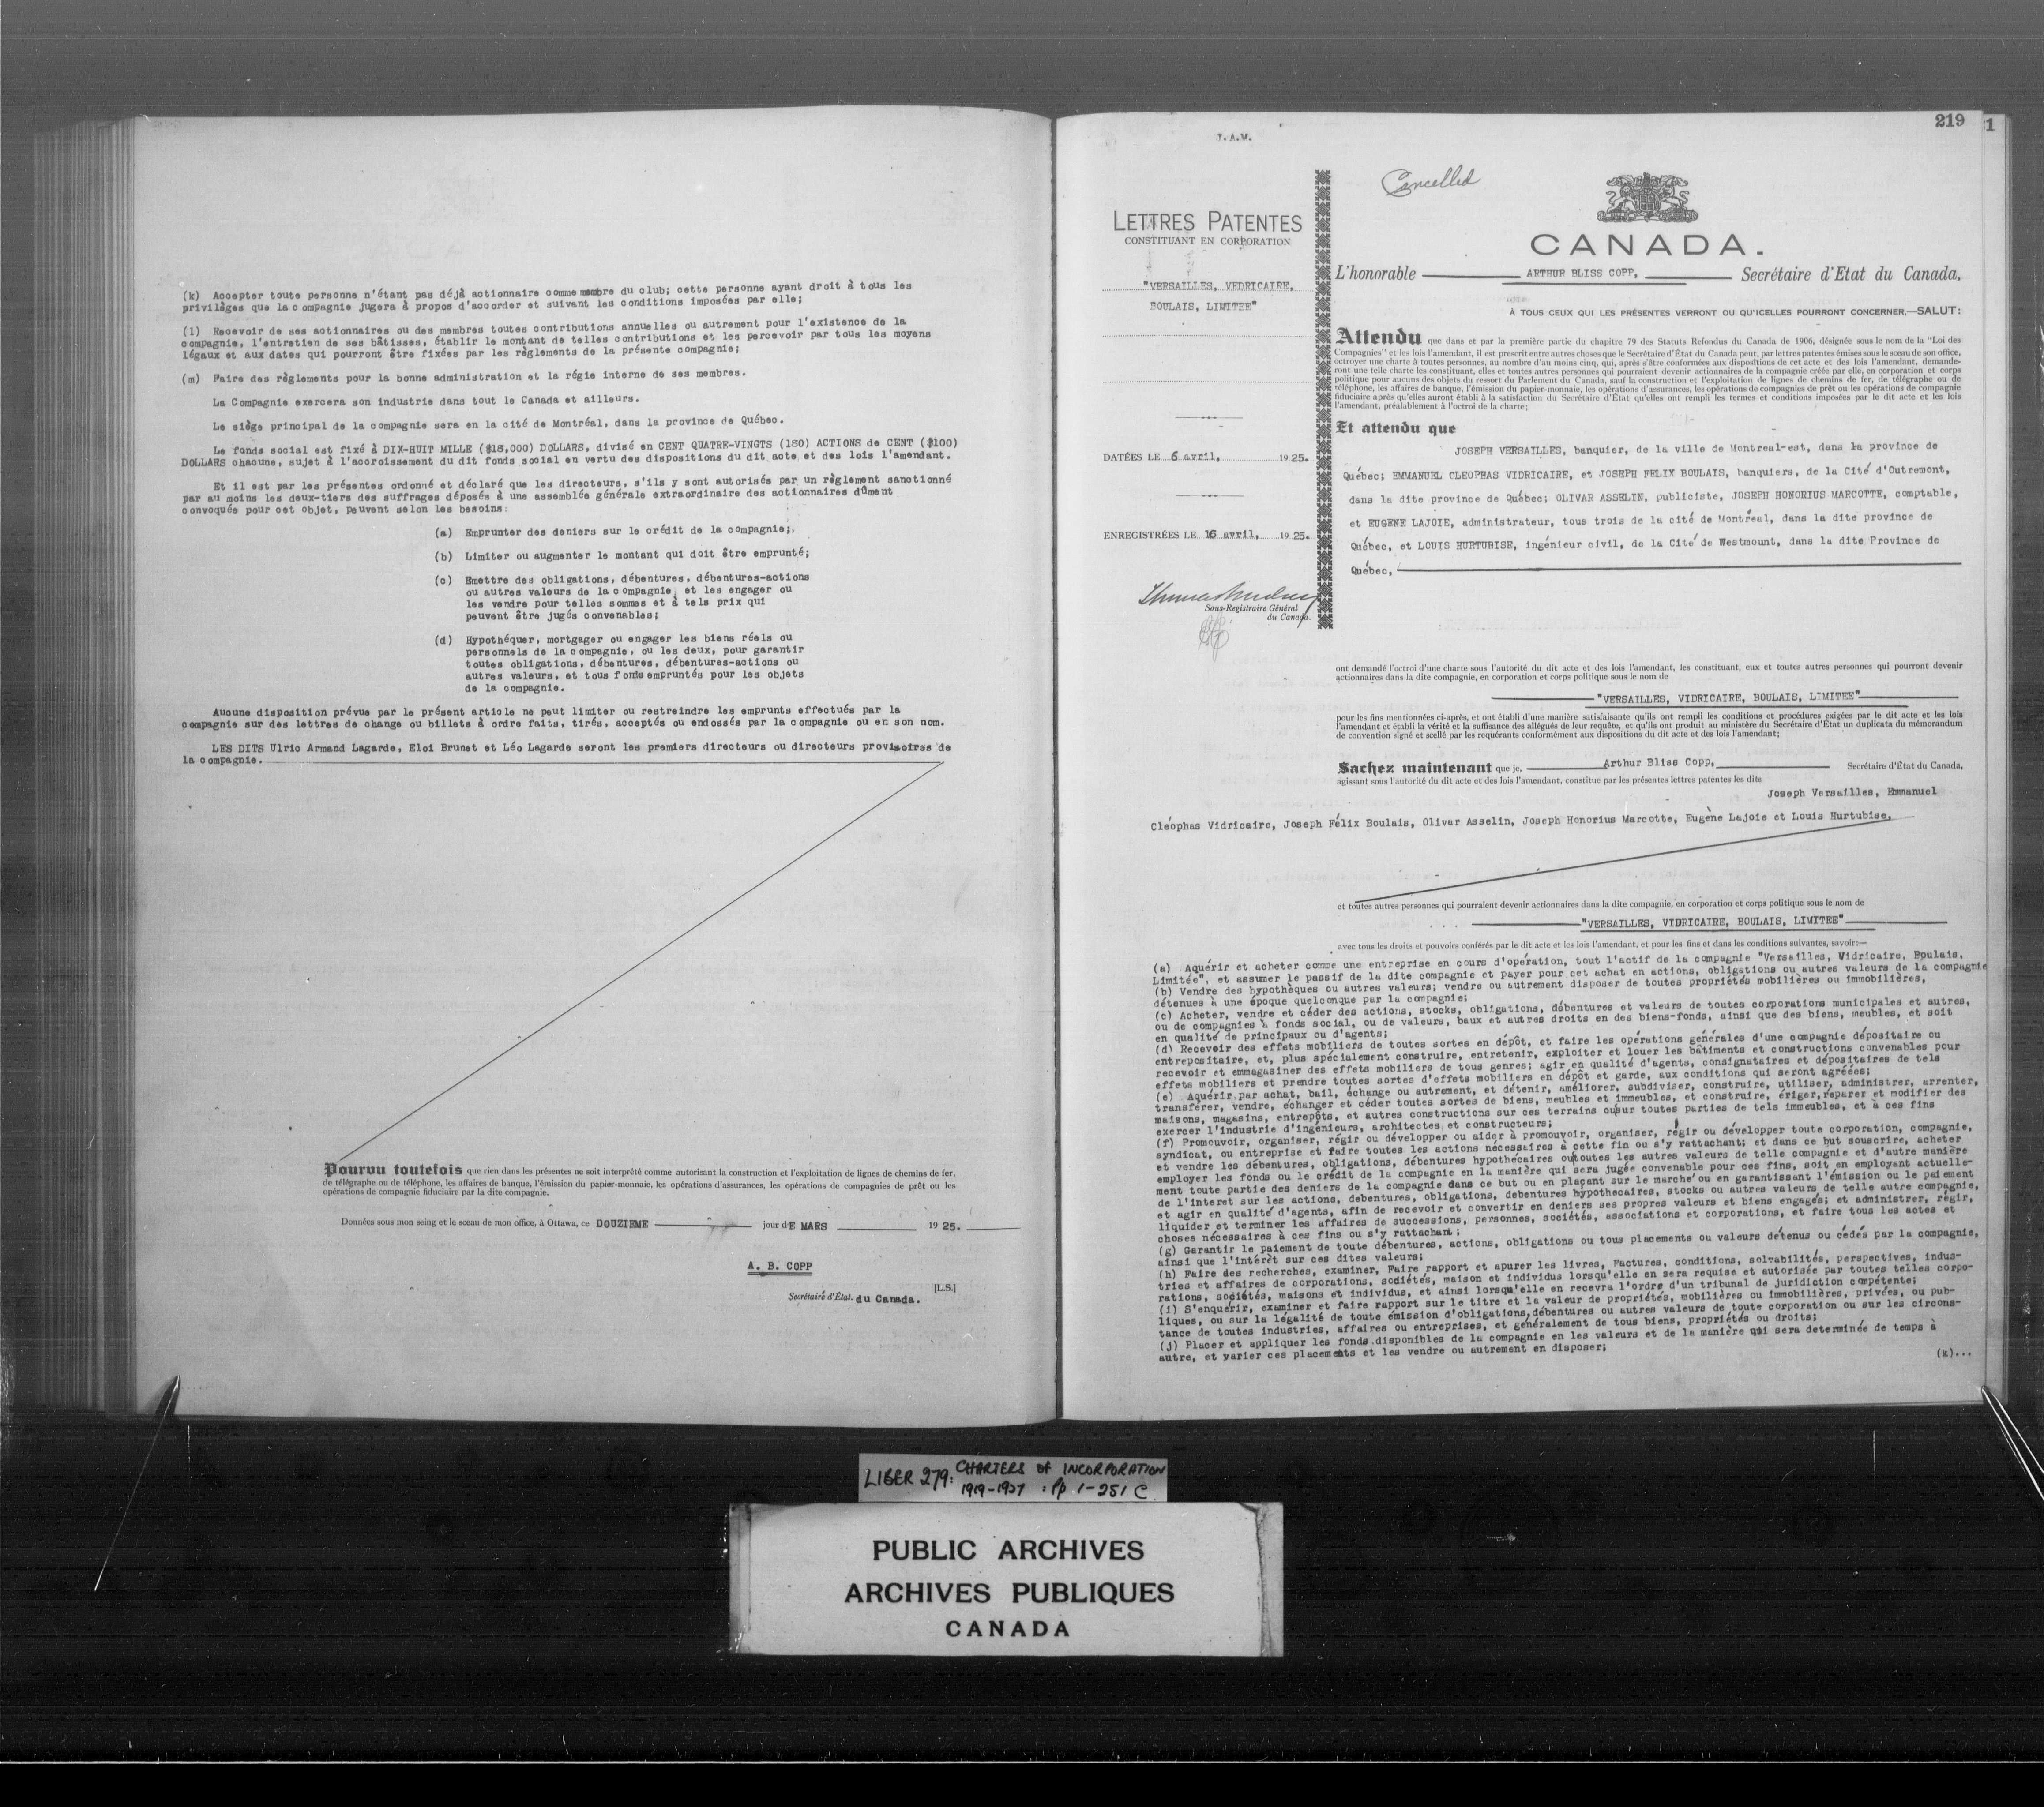 (k) Accepter toute personne n'étant pas déjà actionnaire comme membre du club; cette personne ayant droit à tous les
privilèges que la compagnie jugera à propos d'accorder et suivant les conditions imposées par elle;
(l) Recevoir de ses actionnaires ou des membres toutes contributions annuelles ou autrement pour l'existence de la
compagnie, l'entretien de ses bâtisses, établir le montant de telles contributions et les percevoir par tous les moyens
légaux et aux dates qui pourront être fixées par les règlements de la présente compagnie;
(m) Faire des règlements pour la bonne administration et la régie interne de ses membres.
La Compagnie exercera son industrie dans tout le Canada et ailleurs.
Le siège principal de la compagnie sera en la cité de Montréal, dans la province de Québec.
Le fonds social est fixé à DIX-HUIT MILLE ($18,000) DOLLARS, divisé en CENT QUATRE-VINGTS (180) ACTIONS de CENT ($100)
DOLLARS chacune, sujet à l'accroissement du dit fonds social en vertu des dispositions du dit acte et des lois l'amendant.
Et il est par les présentes ordonné et déclaré que les directeurs, s'ils y sont autorisés par un règlement sanctionné
par au moins les deux-tiers des suffrages déposés à une assemblée générale extraordinaire des actionnaires dûment
convoquée pour cet objet, peuvent selon les besoins:
(a) Emprunter des deniers sur le crédit de la compagnie;
(b) Limiter ou augmenter le montant qui doit être emprunté;
(c) Emettre des obligations, débentures, débentures-actions
ou autres valeurs de la compagnie, et les engager ou
les vendre pour telles sommes et à tels prix qui
peuvent être jugés convenables;
(d) Hypothéquer, mortgager ou engager les biens réels ou
personnels de la compagnie, ou les deux, pour garantir
toutes obligations, débentures, débentures-actions ou
autres valeurs, et tous fonds empruntés pour les objets
de la compagnie.
Aucune disposition prévue par le présent article ne peut limiter ou restreindre les emprunts effectués par la
compagnie sur des lettres de change ou billets à ordre faits, tirés, acceptés ou endossés par la compagnie ou en son nom.
LES DITS Ulric Armand Lagarde, Eloi Brunet et Léo Lagarde seront les premiers directeurs ou directeurs provisoires de
la compagnie.
Pourvu toutefois que rien dans les présentes ne soit interprété comme autorisant la construction et l'exploitation de lignes de chemins de fer,
de télégraphe ou de téléphone, les affaires de banque, l'émission du papier-monnaie, les opérations d'assurances, les opérations de compagnies de prêt ou les
opérations de compagnie fiduciaire par la dite compagnie.
Données sous mon seing et le sceau de mon office, à Ottawa, ce DOUZIEME jour dE MARS 1925.
A. B. COPP
[L.S.]
Secrétaire d'État. du Canada.
219
1
J.A.W.
Cancelled
LETTRES PATENTES
CONSTITUANT EN CORPORATION
"VERSAILLES, VEDRICAIRE,
BOULAIS, LIMITEE"
DATÉES LE 6 avril, 1925.
ENREGISTRÉES LE 16 avril, 1925.
Sous-Registraire Général
du Canada.
CANADA.
L'honorable ARTHUR BLISS COPP, Secrétaire d'Etat du Canada,
À TOUS CEUX QUI LES PRÉSENTES VERRONT OU QU'ICELLES POURRONT CONCERNER,—SALUT:
Attendu que dans et par la première partie du chapitre 79 des Statuts Refondus du Canada de 1906, désignée sous le nom de la "Loi des
Compagnies" et les lois l'amendant, il est prescrit entre autres choses que le Secrétaire d'État du Canada peut, par lettres patentes émises sous le sceau de son office,
octroyer une charte à toutes personnes, au nombre d'au moins cinq, qui, après s'être conformées aux dispositions de cet acte et des lois l'amendant, demande-
ront une telle charte les constituant, elles et toutes autres personnes qui pourraient devenir actionnaires de la compagnie créée par elle, en corporation et corps
politique pour aucuns des objets du ressort du Parlement du Canada, sauf la construction et l'exploitation de lignes de chemins de fer, de télégraphe ou de
téléphone, les affaires de banque, l'émission du papier-monnaie, les opérations d'assurances, les opérations de compagnies de prêt ou les opérations de compagnie
fiduciaire après qu'elles auront établi à la satisfaction du Secrétaire d'État qu'elles ont rempli les termes et conditions imposées par le dit acte et les lois
l'amendant, préalablement à l'octroi de la charte;
Et attendu que
JOSEPH VERSAILLES, banquier, de la ville de Montreal-est, dans la province de
Québec; EMMANUEL CLEOPHAS VIDRICAIRE, et JOSEPH FELIX BOULAIS, banquiers, de la Cité d'Outremont,
dans la dite province de Québec; OLIVAR ASSELIN, publiciste, JOSEPH HONORIUS MARCOTTE, comptable,
et EUGENE LAJOIE, administrateur, tous trois de la cité de Montréal, dans la dite province de
Québec, et LOUIS HURTUBISE, ingénieur civil, de la Cité de Westmount, dans la dite Province de
Québec,
ont demandé l'octroi d'une charte sous l'autorité du dit acte et des lois l'amendant, les constituant, eux et toutes autres personnes qui pourront devenir
actionnaires dans la dite compagnie, en corporation et corps politique sous le nom de
"VERSAILLES, VIDRICAIRE, BOULAIS, LIMITEE"
pour les fins mentionnées ci-après, et ont établi d'une manière satisfaisante qu'ils ont rempli les conditions et procédures exigées par le dit acte et les lois
l'amendant et établi la vérité et la suffisance des allégués de leur requête, et qu'ils ont produit au ministère du Secrétaire d'État un duplicata du mémorandum
de convention signé et scellé par les requérants conformément aux dispositions du dit acte et des lois l'amendant;
Sachez maintenant que je, Arthur Bliss Copp, Secrétaire d'État du Canada,
agissant sous l'autorité du dit acte et des lois l'amendant, constitue par les présentes lettres patentes les dits
Joseph Versailles, Emmanuel
Cléophas Vidricaire, Joseph Félix Boulais, Olivar Asselin, Joseph Honorius Marcotte, Eugène Lajoie et Louis Hurtubise,
et toutes autres personnes qui pourraient devenir actionnaires dans la dite compagnie, en corporation et corps politique sous le nom de
"VERSAILLES, VIDRICAIRE, BOULAIS, LIMITEE"
avec tous les droits et pouvoirs conférés par le dit acte et les lois l'amendant, et pour les fins et dans les conditions suivantes, savoir:—
(a) Aquérir et acheter comme une entreprise en cours d'opération, tout l'actif de la compagnie "Versailles, Vidricaire, Boulais,
Limitée", et assumer le passif de la dite compagnie et payer pour cet achat en actions, obligations ou autres valeurs de la compagnie
(b) Vendre des hypothèques ou autres valeurs; vendre ou autrement disposer de toutes propriétés mobilières ou immobilières,
détenues à une époque quelconque par la compagnie;
(c) Acheter, vendre et céder des actions, stocks, obligations, débentures et valeurs de toutes corporations municipales et autres,
ou de compagnies à fonds social, ou de valeurs, baux et autres droits en des biens-fonds, ainsi que des biens, meubles, et soit
en qualité de principaux ou d'agents;
(d) Recevoir des effets mobiliers de toutes sortes en dépôt, et faire les opérations générales d'une compagnie dépositaire ou
entrepositaire, et, plus spécialement construire, entretenir, exploiter et louer les bâtiments et constructions convenables pour
recevoir et emmagasiner des effets mobiliers de tous genres; agir en qualité d'agents, consignataires et dépositaires de tels
effets mobiliers et prendre toutes sortes d'effets mobiliers en dépôt et garde, aux conditions qui seront agréées;
(e) Aquérir par achat, bail, échange ou autrement, et détenir, améliorer, subdiviser, construire, utiliser, administrer, arrenter,
transférer, vendre, échanger et céder toutes sortes de biens, meubles et immeubles, et construire, ériger, réparer et modifier des
maisons, magasins, entrepôts, et autres constructions sur ces terrains ou sur toutes parties de tels immeubles, et à ces fins
exercer l'industrie d'ingénieurs, architectes et constructeurs;
(f) Promouvoir, organiser, régir ou développer ou aider à promouvoir, organiser, régir ou développer toute corporation, compagnie,
syndicat, ou entreprise et faire toutes les actions nécessaires à cette fin ou s'y rattachant; et dans ce but souscrire, acheter
et vendre les débentures, obligations, débentures hypothécaires ou toutes les autres valeurs de telle compagnie et d'autre manière
employer les fonds ou le crédit de la compagnie en la manière qui sera jugée convenable pour ces fins, soit en employant actuelle-
ment toute partie des deniers de la compagnie dans ce but ou en plaçant sur le marché ou en garantissant l'émission ou le paiement
de l'interet sur les actions, debentures, obligations, debentures hypothecaires, stocks ou autres valeurs de telle autre compagnie,
et agir en qualité d'agents, afin de recevoir et convertir en deniers ses propres valeurs et biens engagés; et administrer, régir,
liquider et terminer les affaires de successions, personnes, sociétés, associations et corporations, et faire tous les actes et
choses nécessaires à ces fins ou s'y rattachant;
(g) Garantir le paiement de toute débentures, actions, obligations ou tous placements ou valeurs détenus ou cédés par la compagnie,
ainsi que l'intérêt sur ces dites valeurs;
(h) Faire des recherches, examiner, Faire rapport et apurer les livres, Factures, conditions, solvabilités, perspectives, indus-
tries et affaires de corporations, sociétés, maison et individus lorsqu'elle en sera requise et autorisée par toutes telles corpo-
rations, sociétés, maisons et individus, et ainsi lorsqu'elle en recevra l'ordre d'un tribunal de juridiction compétente;
(i) S'enquérir, examiner et faire rapport sur le titre et la valeur de propriétés, mobilières ou immobilières, privées, ou pub-
liques, ou sur la légalité de toute émission d'obligations, débentures ou autres valeurs de toute corporation ou sur les circons-
tance de toutes industries, affaires ou entreprises, et généralement de tous biens, propriétés ou droits;
(j) Placer et appliquer les fonds disponibles de la compagnie en les valeurs et de la manière qui sera determinée de temps à
autre, et varier ces placements et les vendre ou autrement en disposer;
(k)...
LIBER 279: CHARTERS of INCORPORATION
1919-1927 : Pp 1-251 C
PUBLIC ARCHIVES
ARCHIVES PUBLIQUES
CANADA